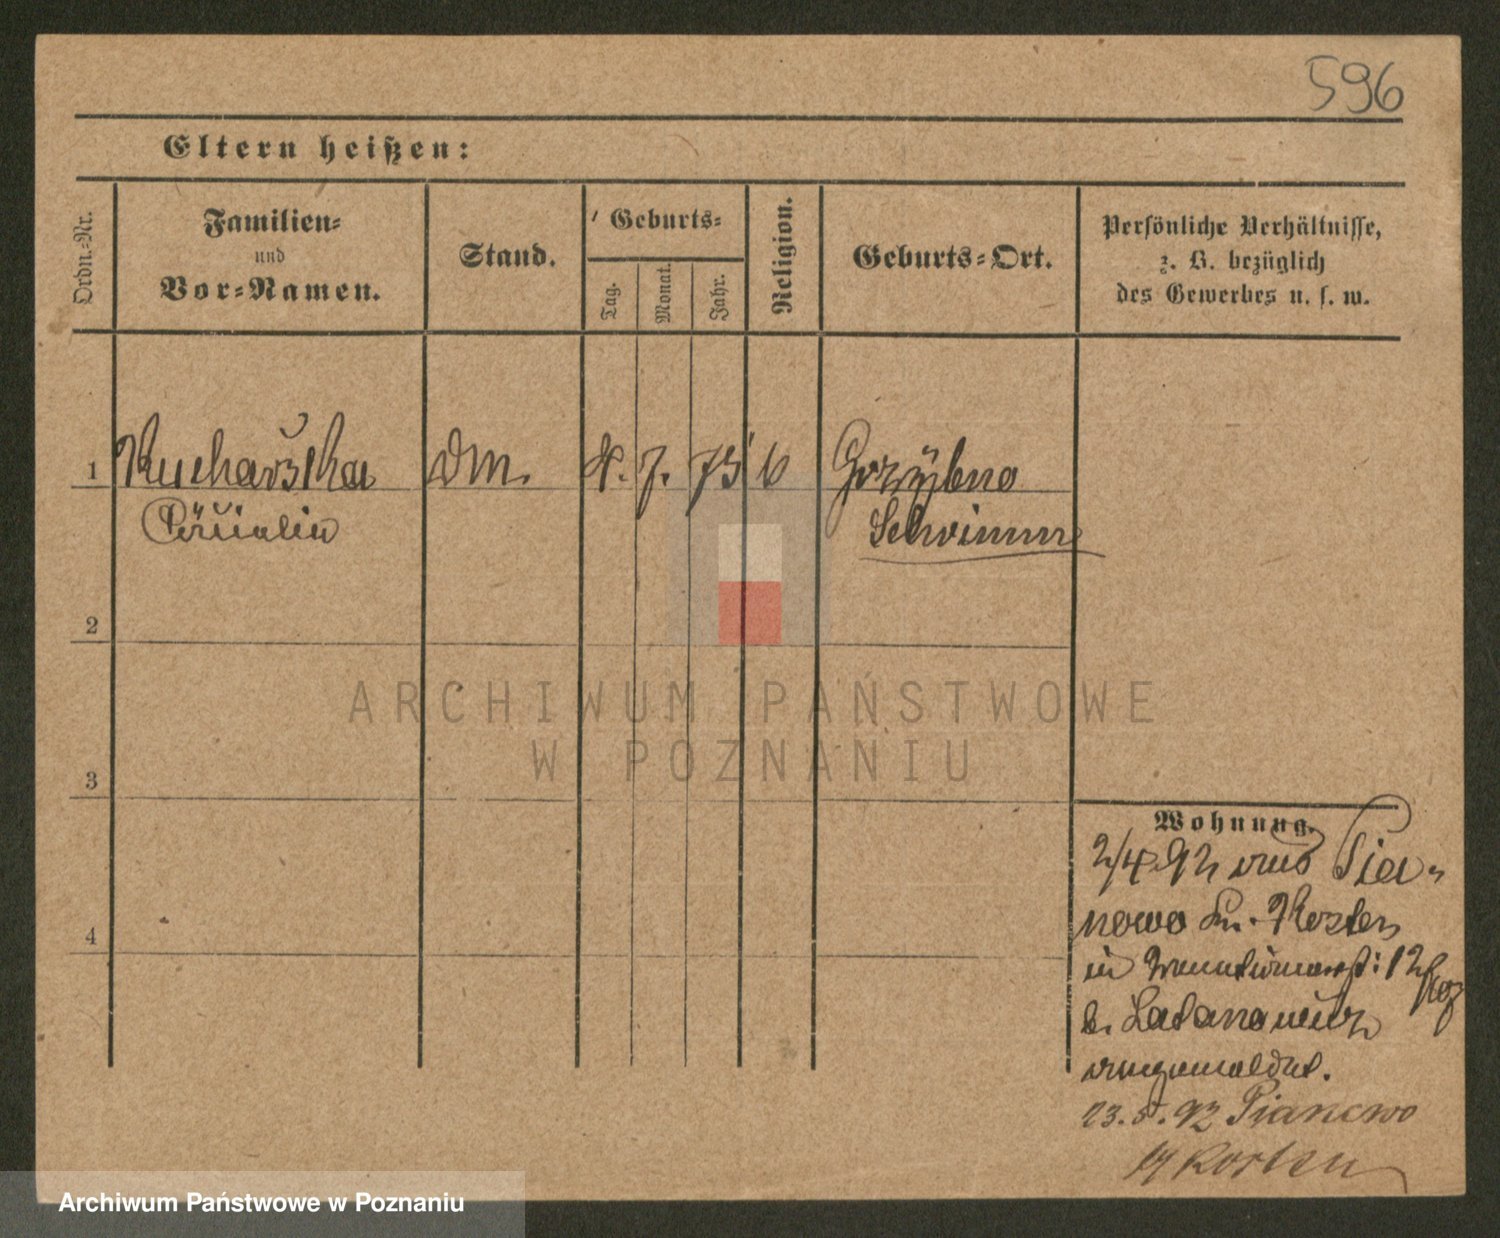 596
Eltern heißen:
Ordn.-Nr.
Familien-
und
Vor-Namen.
Stand.
Geburts-
Tag.
Monat.
Jahr.
Religion.
Geburts-Ort.
Persönliche Verhältnisse,
z. B. bezüglich
des Gewerbes u. s. w.
1 Kucharska Dm. 4. 7. 73 Grzybno
Schrimm
2
3
4
Wohnung.
2/4 92 aus Pia-
nowo Kr. Kosten
in 12
b.
angemeldet.
23.5.92 Pianowo
Kosten
ARCHIWUM PAŃSTWOWE
W POZNANIU
Archiwum Państwowe w Poznaniu